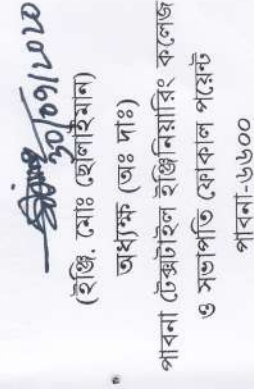 ৩০/০৬/২০২০
(ইঞ্জি. মোঃ ছোলাইমান)
অধ্যক্ষ (অঃ দাঃ)
পাবনা টেক্সটাইল ইঞ্জিনিয়ারিং কলেজ
ও সভাপতি ফোকাল পয়েন্ট
পাবনা-৬৬০০